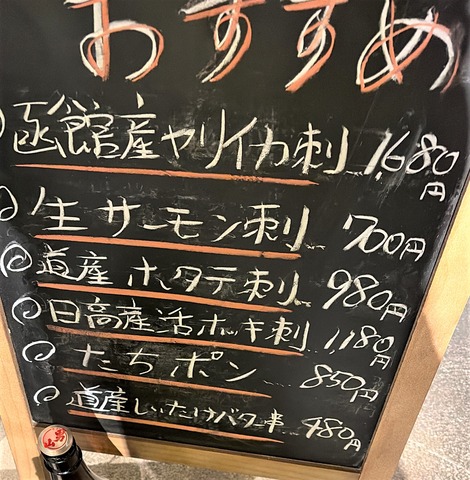 おすすめ
函館産ヤリイカ刺 1,680円
生サーモン刺 700円
道産ホタテ刺 980円
日高産活ホッキ刺 1,180円
たちポン 850円
道産しいたけバター串 480円